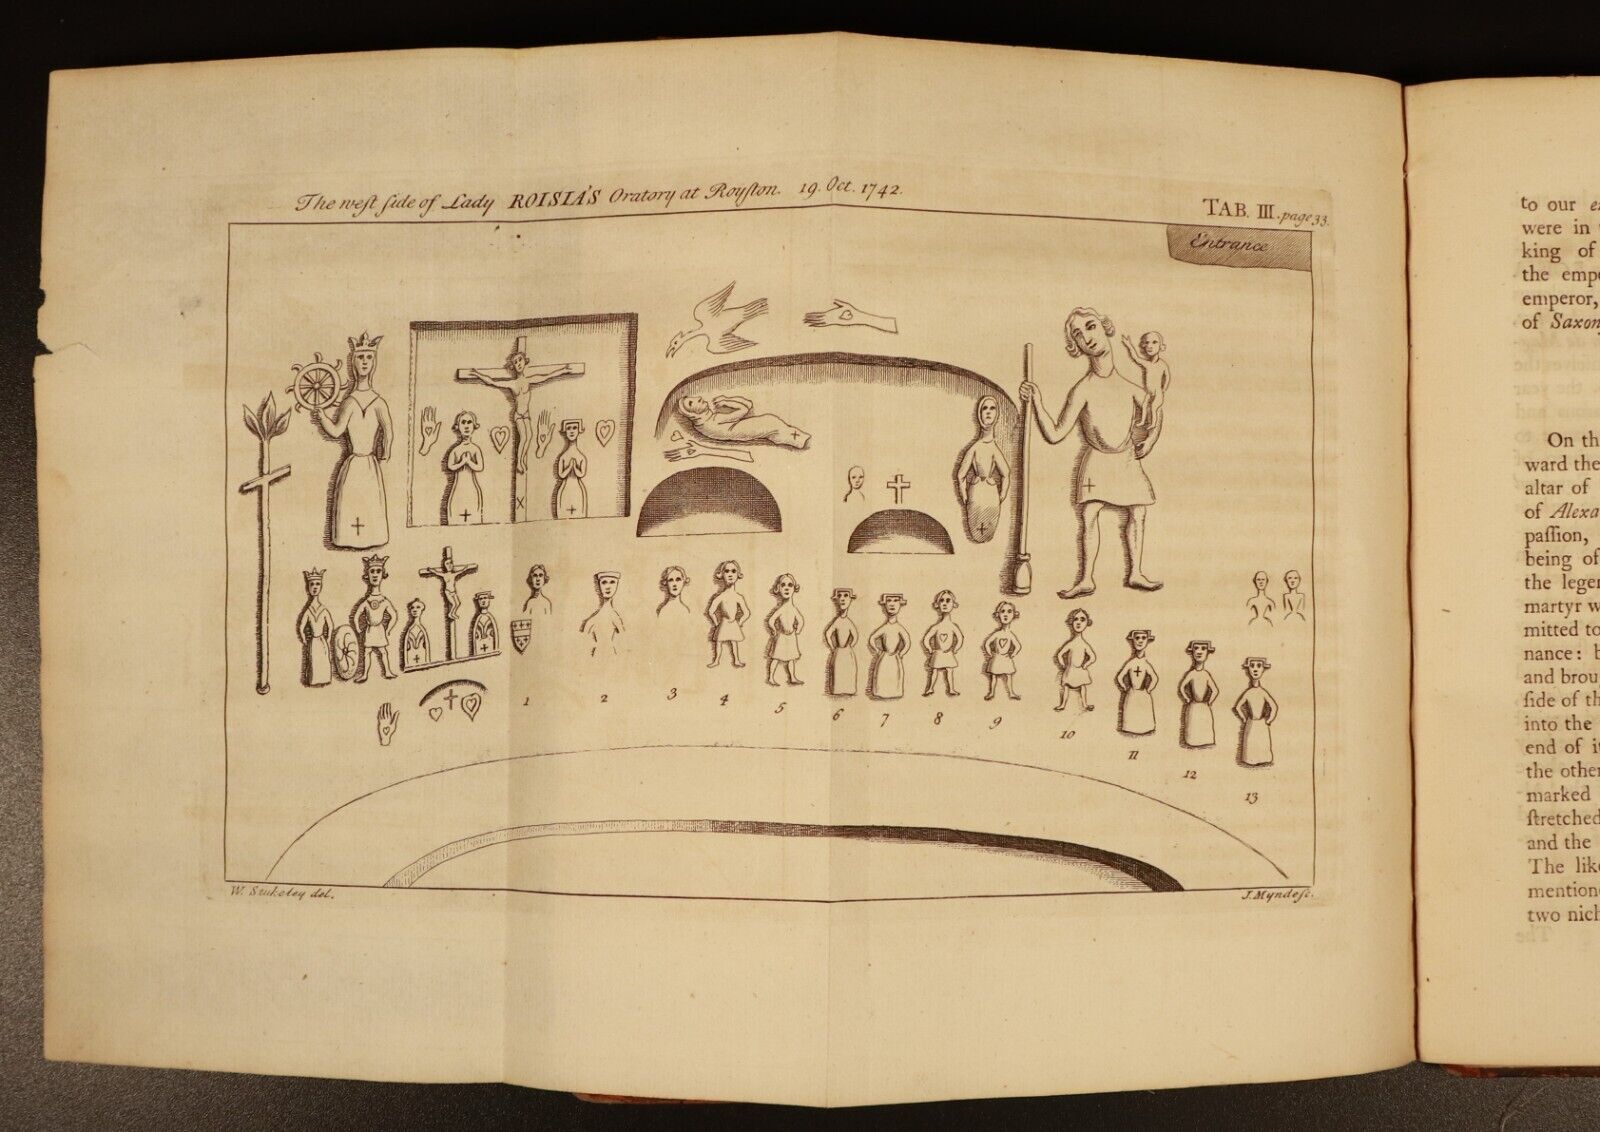 The weſt ſide of Lady ROISIA'S Oratory at Royſton. 19. Oct. 1742.
TAB. III. page 33.
Entrance
1 2 3 4 5 6 7 8 9 10 11 12 13
W. Stukeley del.
J. Mynde ſc.
to our
were in
king of
the
emperor,
of Saxon
On
ward the
altar of
of
paſſion,
being of
the
martyr
mitted to
nance:
and
ſide of
into the
end of
the
marked
ſtretched
and the
The
two
The